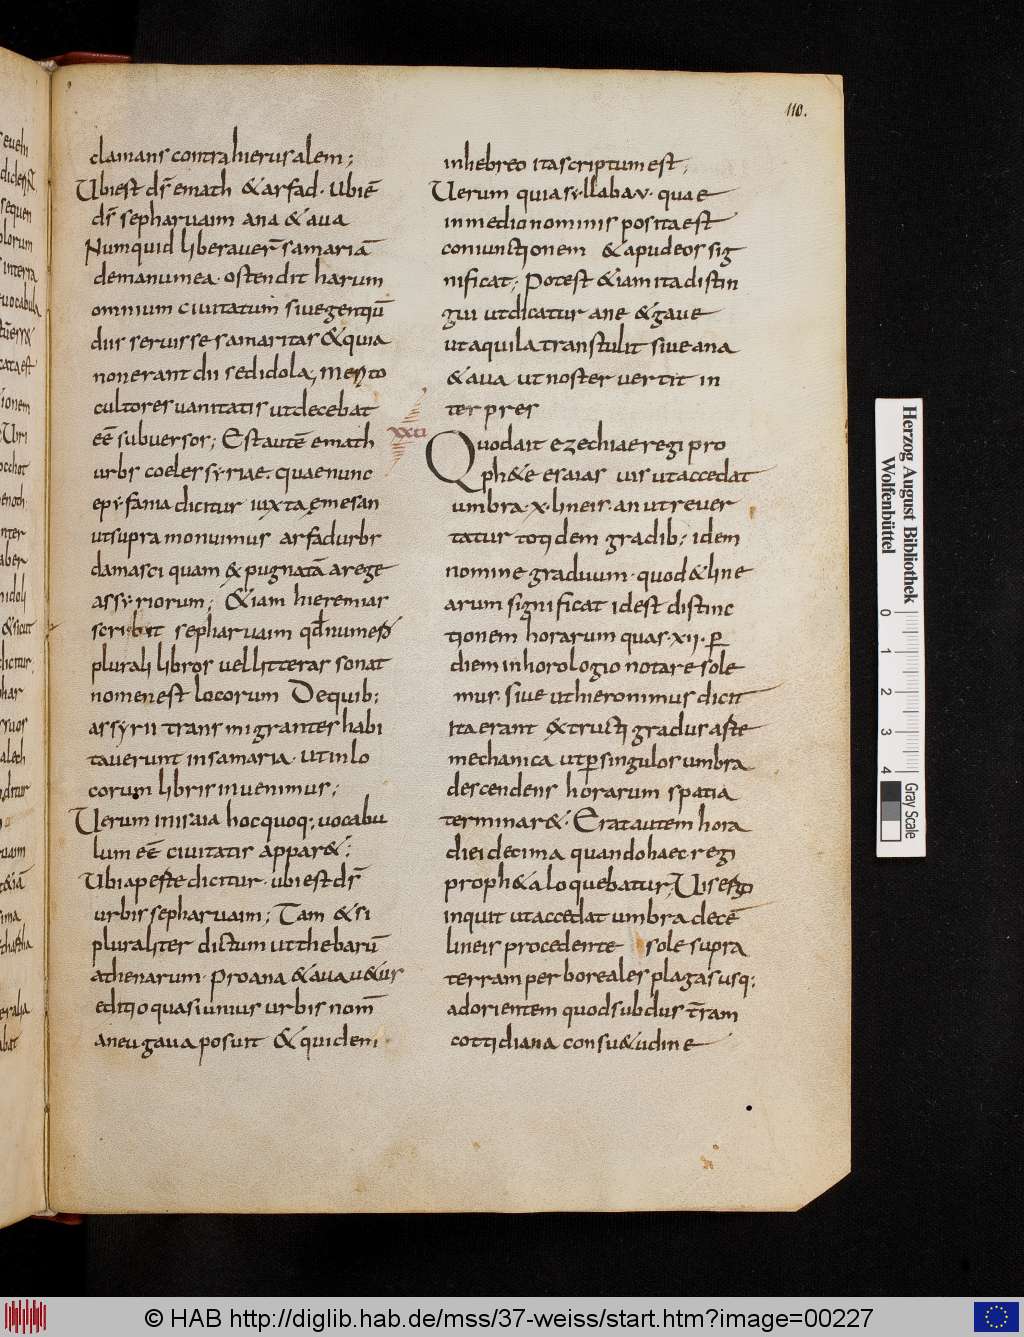 110.
clamans contra hierusalem;
Ubi est ds̄ emath & arfad· ubi ē
ds̄ sepharuaim ana & aua
Numquid liberauer̄ samariā
de manu mea· ostendit harum
omnium ciuitatum siue gentiū
diis seruisse samaritas & quia
non erant dii sed idola, merito
cultores uanitatis ut decebat
eē subuersor; Est autē emath
urbs coeles syriae· quae nunc
epyfania dicitur iuxta emesan
ut supra monuimus arfad urbs
damasci quam & pugnatā a rege
assyriorum; &iam hieremias
scribit sepharuaim qd̄ numero
plurali libros uel litteras sonat
nomen est locorum De quib;
assyrii transmigrantes habi
tauerunt in samaria· ut in lo
corum libris inuenimus;
Uerum in isaia hoc quoq; uocabu
lum eē ciuitatis appar&;
Ubi apeste dicitur· ubi est ds̄
urbis sepharuaim; Tam & si
pluraliter dictum ut thebarū
athenarum· Pro ana & aua u&us
editio quasi unius urbis nom̄
aneugaua posuit & quidem
in hebreo ita scriptum est;
Uerum quia syllaba y· quae
in medio nominis posita est
coniunctionem & apud eos sig
nificat; Potest &iam ita distin
gui ut dicatur ane & gaue
ut aquila transtulit siue ana
& aua ut noster uertit in
terpres
xxci
Quod ait ezechiae regi pro
ph&e esaias uis ut accedat
umbra· x· lineis· an ut reuer
tatur totidem gradib; idem
nomine graduum· quod & line
arum significat id est distinc
tionem horarum quas· xii· per
diem in horologio notare sole
mus· siue ut hieronimus dicit
Ita erant &tructi gradus aste
mechanica ut per singulos umbra
descendens horarum spatia
terminar&· Erat autem hora
diei decima quando haec regi
proph&a loquebatur, Uis ergo
inquit ut accedat umbra decē
lineis procedente sole supra
terram per boreales plagas usq;
ad orientem quod sub dus t̄ram
cottidiana consu&udine
Herzog August Bibliothek
Wolfenbüttel
0 1 2 3 4
Gray Scale
© HAB http://diglib.hab.de/mss/37-weiss/start.htm?image=00227